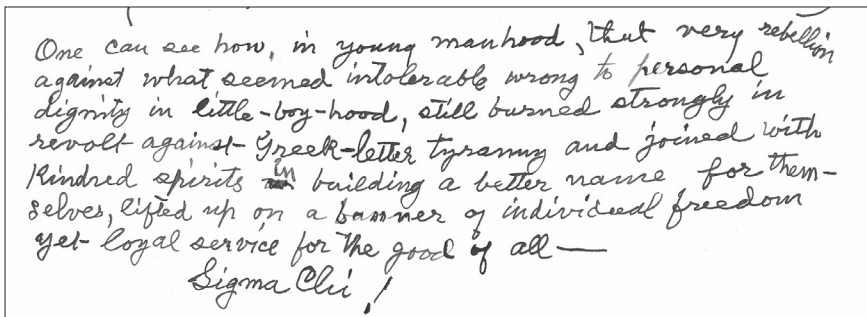 One can see how, in young manhood, that very rebellion
against what seemed intolerable wrong to personal
dignity in little-boy-hood, still burned strongly in
revolt against Greek-letter tyranny and joined with
Kindred spirits in building a better name for them-
selves, lifted up on a banner of individual freedom
yet loyal service for the good of all —
Sigma Chi!